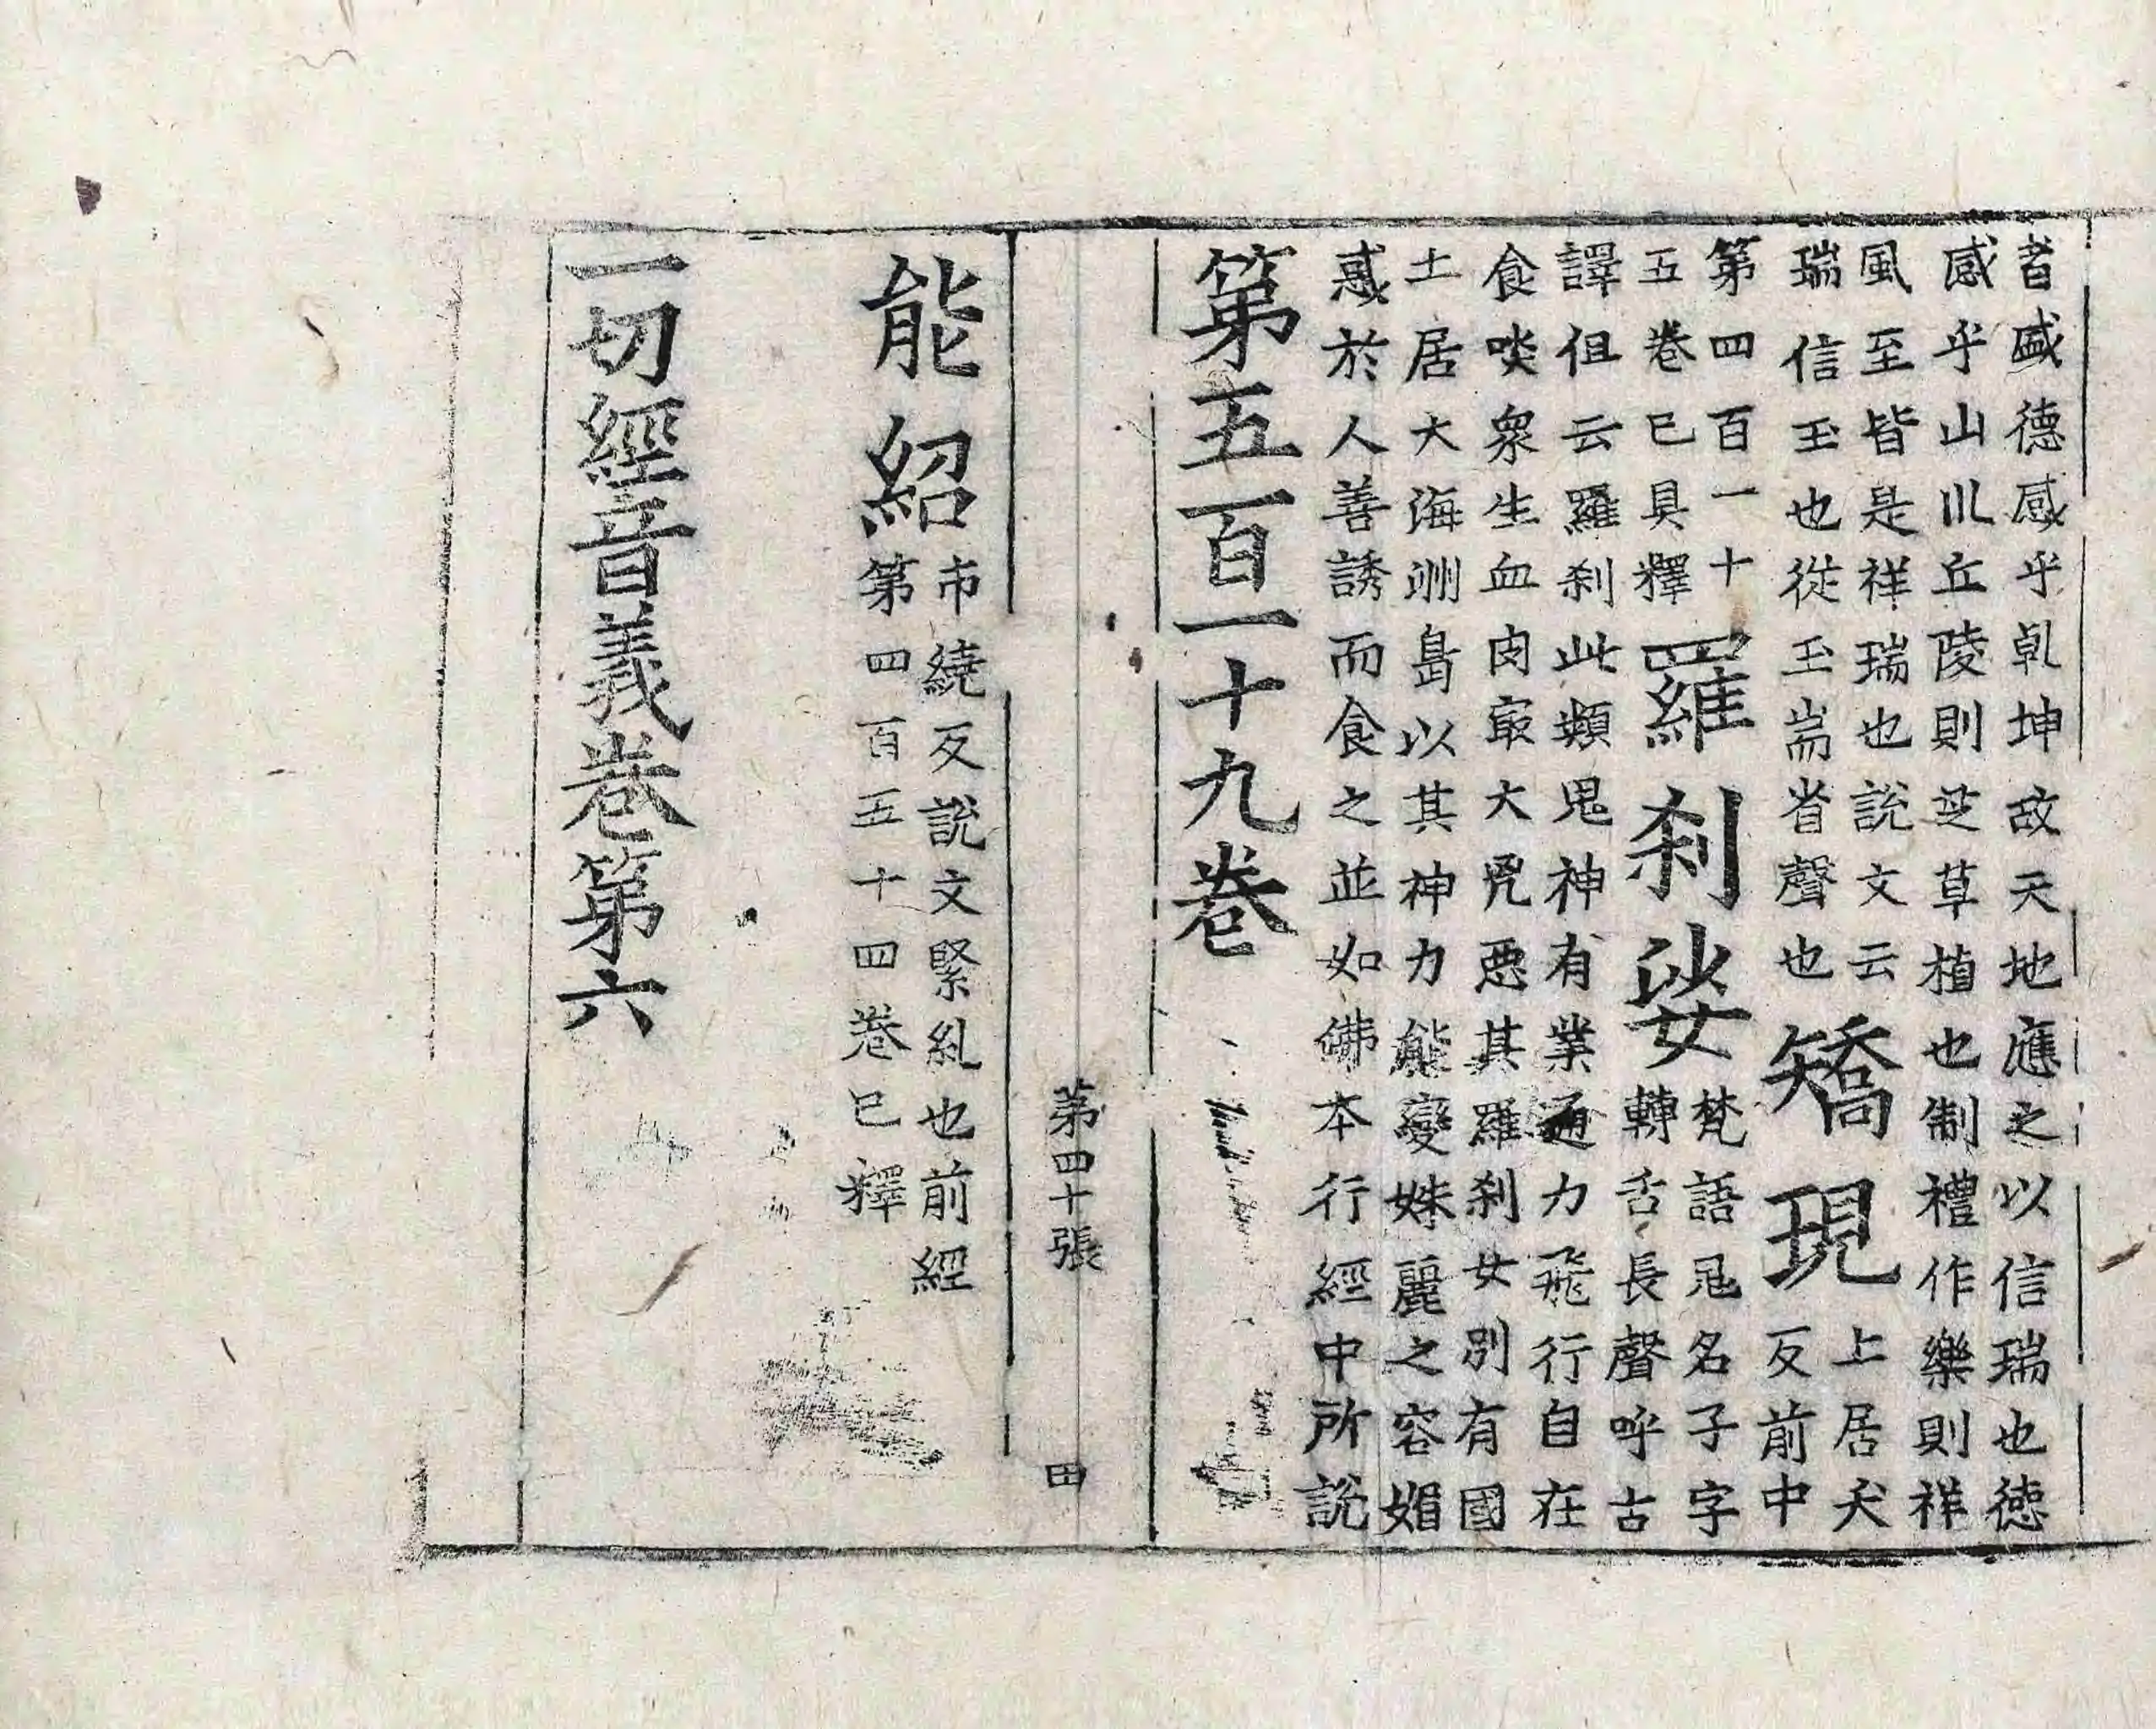 者盛德感乎乾坤故天地應之以信瑞也德
感乎山川丘陵則芝草植也制禮作樂則祥
風至皆是祥瑞也說文云
瑞信玉也從玉耑省聲也
矯現
上居夭
反前中
第四百一十
五卷已具釋
羅刹娑
梵語鬼名子字
轉舌長聲呼古
譯但云羅刹此類鬼神有業通力飛行自在
食啖衆生血肉㝡大凶惡其羅刹女別有國
土居大海洲島以其神力能變姝麗之容媚
惑於人善誘而食之並如佛本行經中所說
第五百一十九卷
第四十張 田
能紹
市繞反說文緊糺也前經
第四百五十四卷已釋
一切經音義卷第六